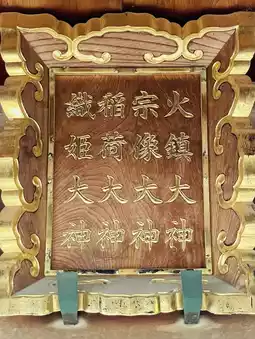 火鎮大神
宗像大神
稲荷大神
織姫大神